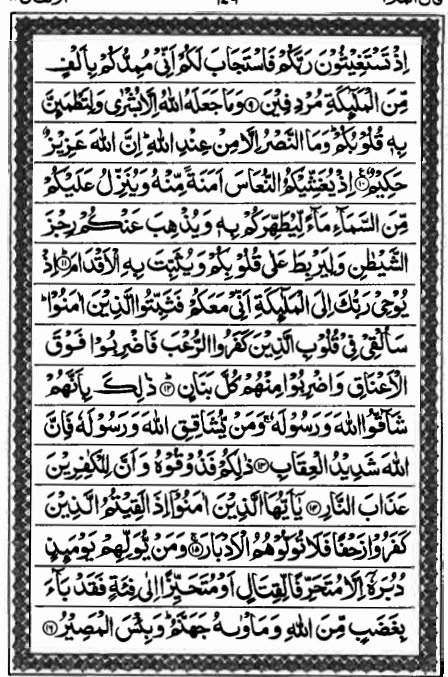 اِذْ تَسْتَغِيْثُوْنَ رَبَّكُمْ فَاسْتَجَابَ لَكُمْ اَنِّيْ مُمِدُّكُمْ بِاَلْفٍ
مِّنَ الْمَلٰٓئِكَةِ مُرْدِفِيْنَ ۹ وَمَا جَعَلَهُ اللهُ اِلَّا بُشْرٰى وَلِتَطْمَئِنَّ
بِهٖ قُلُوْبُكُمْ ؕ وَمَا النَّصْرُ اِلَّا مِنْ عِنْدِ اللهِ ؕ اِنَّ اللهَ عَزِيْزٌ
حَكِيْمٌ ۱۰ اِذْ يُغَشِّيْكُمُ النُّعَاسَ اَمَنَةً مِّنْهُ وَيُنَزِّلُ عَلَيْكُمْ
مِّنَ السَّمَآءِ مَآءً لِّيُطَهِّرَكُمْ بِهٖ وَيُذْهِبَ عَنْكُمْ رِجْزَ
الشَّيْطٰنِ وَلِيَرْبِطَ عَلٰى قُلُوْبِكُمْ وَيُثَبِّتَ بِهِ الْاَقْدَامَ ۱۱ اِذْ
يُوْحِيْ رَبُّكَ اِلَى الْمَلٰٓئِكَةِ اَنِّيْ مَعَكُمْ فَثَبِّتُوا الَّذِيْنَ اٰمَنُوْا ؕ
سَاُلْقِيْ فِيْ قُلُوْبِ الَّذِيْنَ كَفَرُوا الرُّعْبَ فَاضْرِبُوْا فَوْقَ
الْاَعْنَاقِ وَاضْرِبُوْا مِنْهُمْ كُلَّ بَنَانٍ ۱۲ ذٰلِكَ بِاَنَّهُمْ
شَآقُّوا اللهَ وَرَسُوْلَهٗ ۚ وَمَنْ يُّشَاقِقِ اللهَ وَرَسُوْلَهٗ فَاِنَّ
اللهَ شَدِيْدُ الْعِقَابِ ۱۳ ذٰلِكُمْ فَذُوْقُوْهُ وَاَنَّ لِلْكٰفِرِيْنَ
عَذَابَ النَّارِ ۱۴ يٰٓاَيُّهَا الَّذِيْنَ اٰمَنُوْٓا اِذَا لَقِيْتُمُ الَّذِيْنَ
كَفَرُوْا زَحْفًا فَلَا تُوَلُّوْهُمُ الْاَدْبَارَ ۱۵ وَمَنْ يُّوَلِّهِمْ يَوْمَئِذٍ
دُبُرَهٗٓ اِلَّا مُتَحَرِّفًا لِّقِتَالٍ اَوْ مُتَحَيِّزًا اِلٰى فِئَةٍ فَقَدْ بَآءَ
بِغَضَبٍ مِّنَ اللهِ وَمَاْوٰىهُ جَهَنَّمُ ؕ وَبِئْسَ الْمَصِيْرُ ۱۶